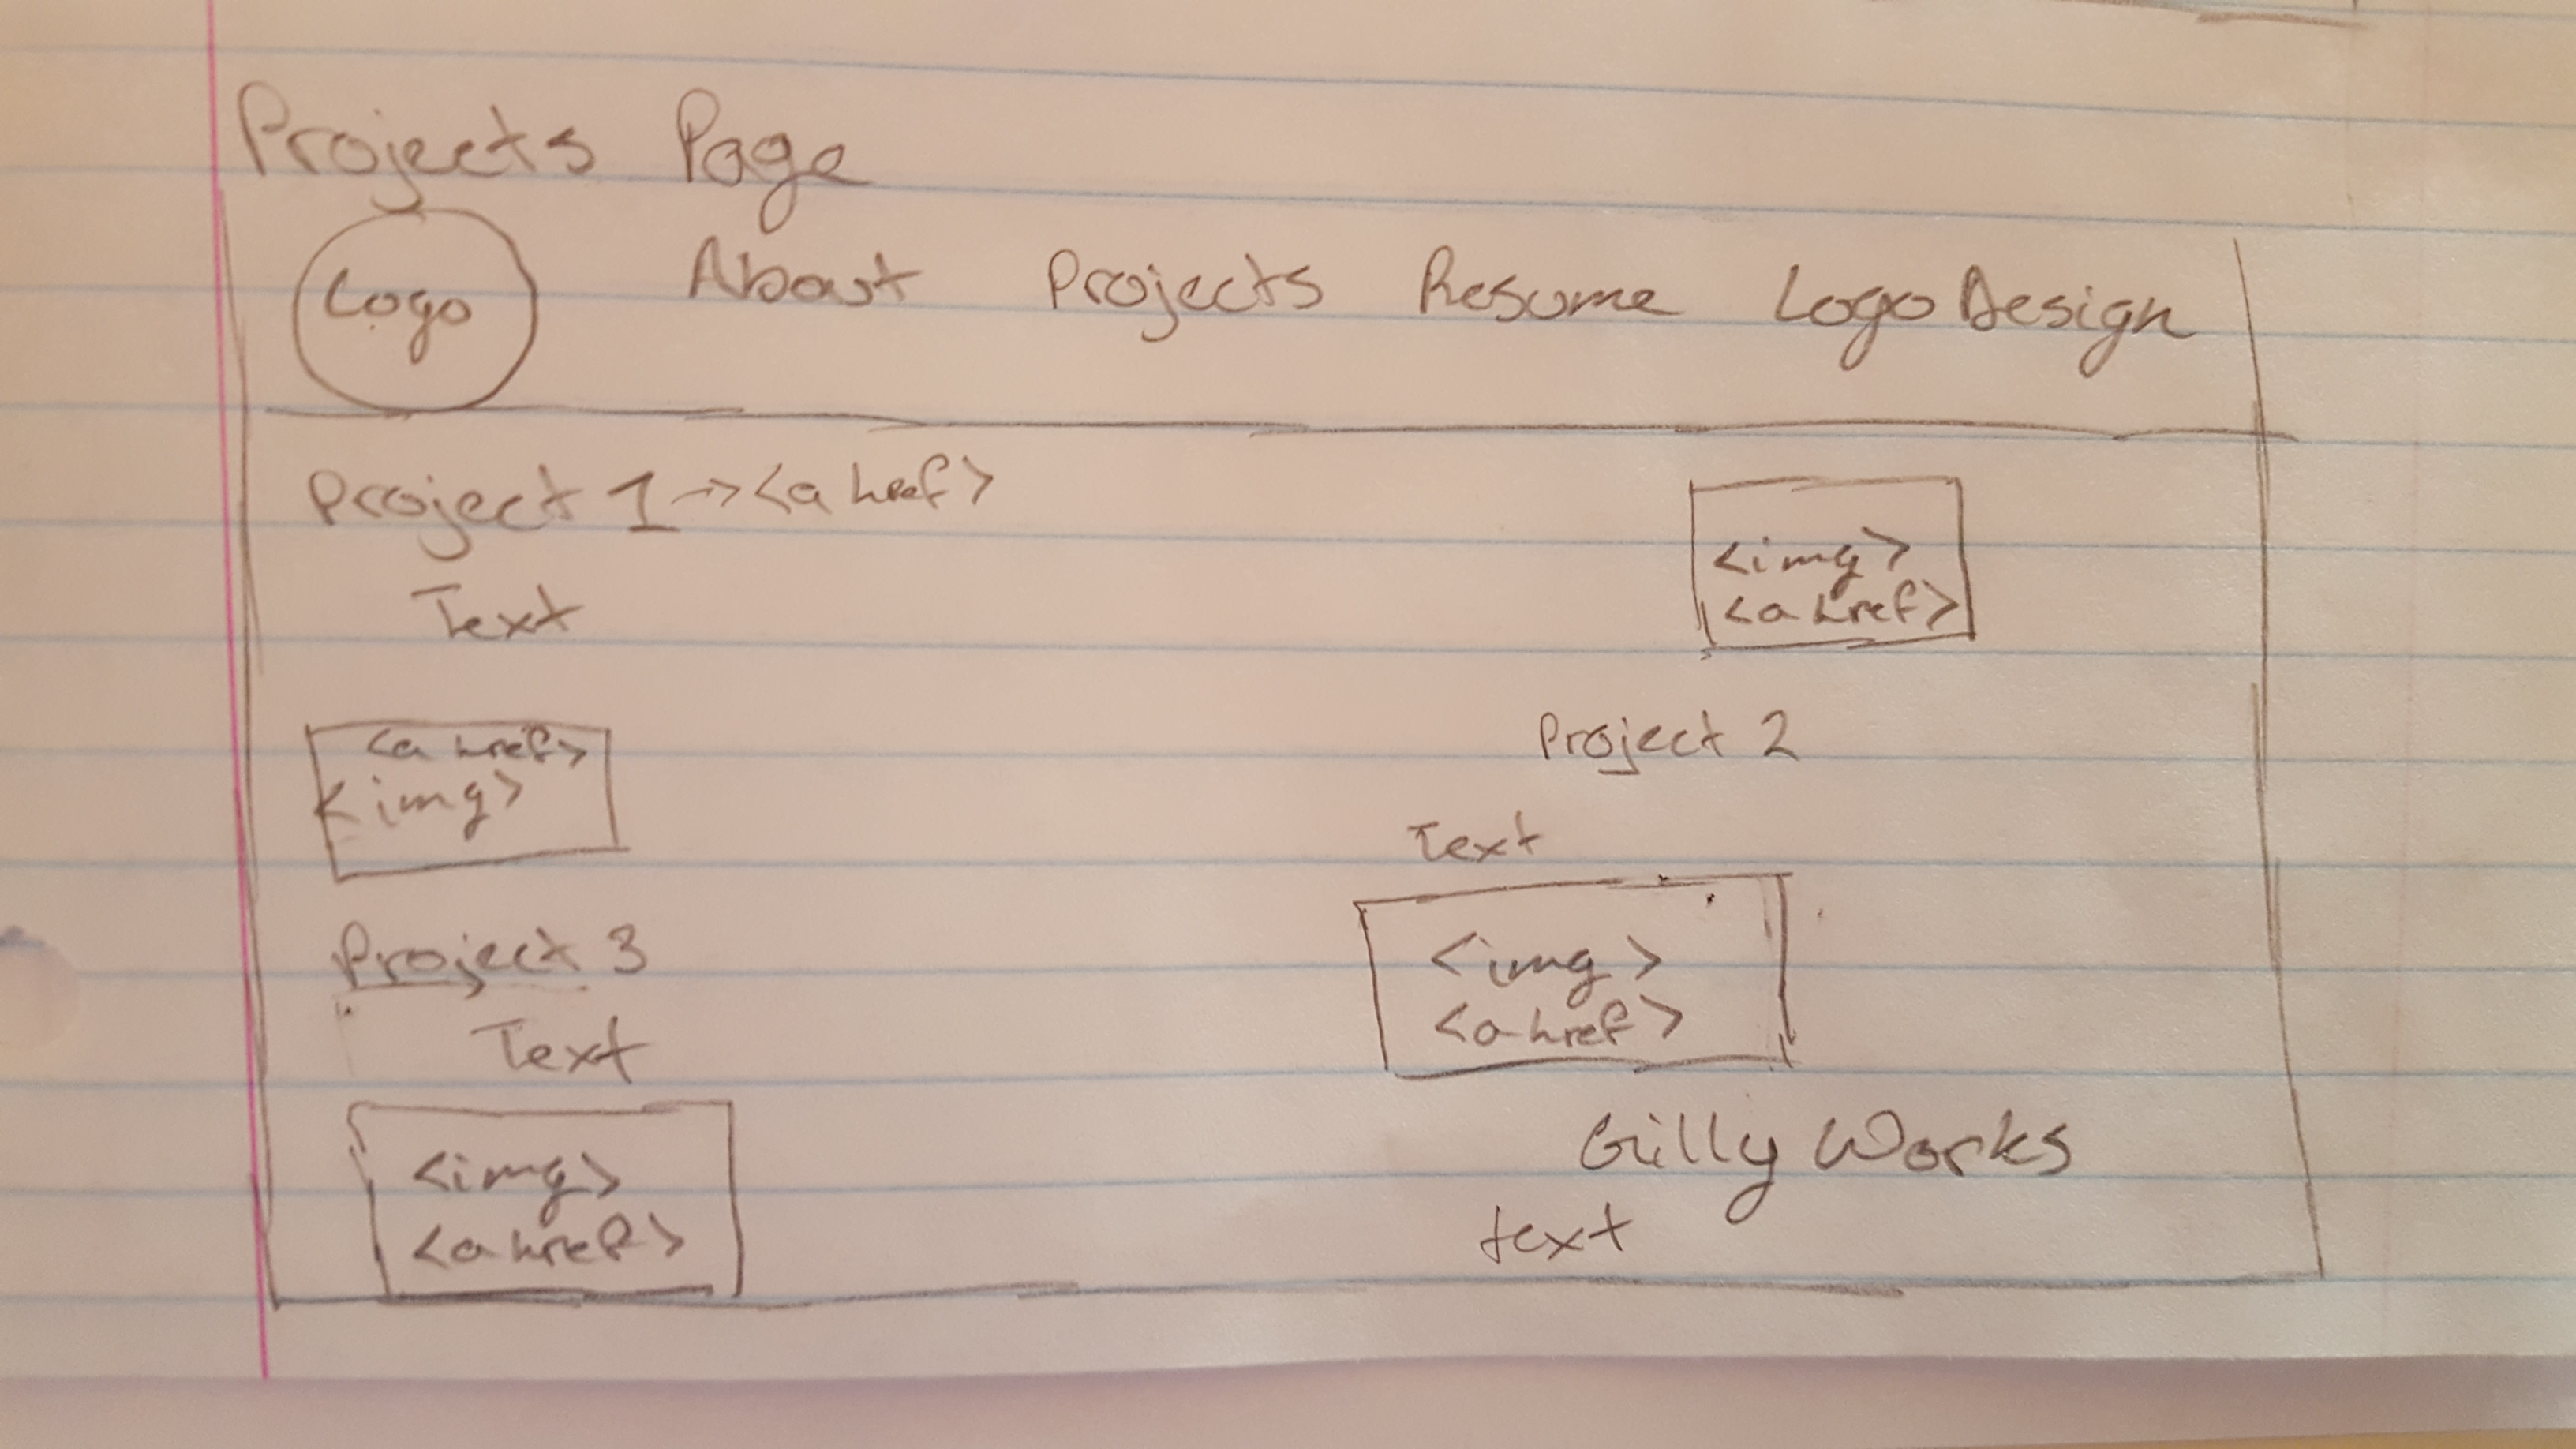 Projects Page
Logo About Projects Resume Logo Design
Project 1 → <a href>
<img>
<a href>
Text
<a href>
<img>
Project 2
Text
Project 3
Text
<img>
<a href>
<img>
<a href>
Gilly Works
text